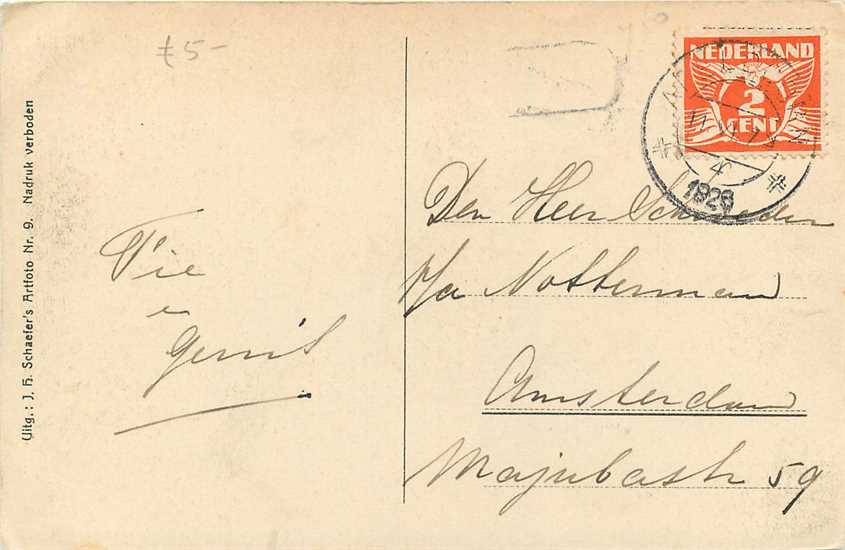 £5-
Uitg.: J. H. Schaefer's Artfoto Nr. 9. Nadruk verboden
Tie
en
Gerrit
NEDERLAND
2
CENT
4
1928
Den Heer Schroeder
p/a Notterman
Amsterdam
Majubastr 59